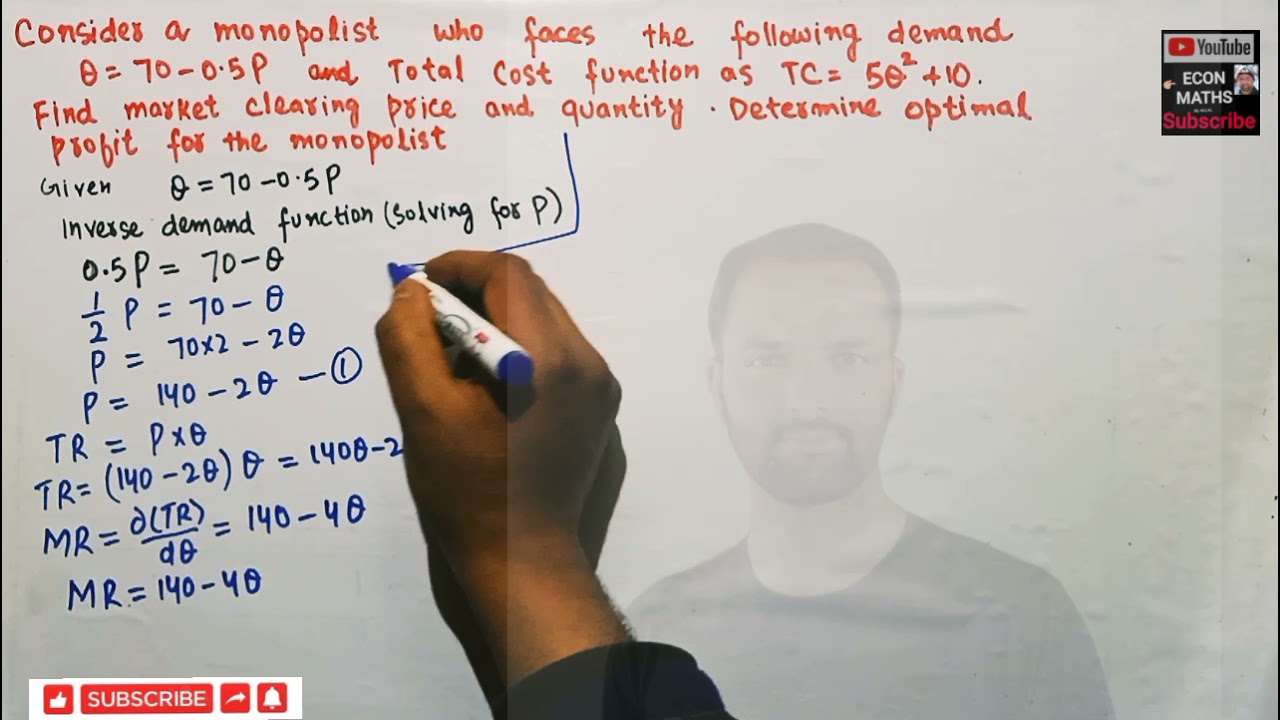 Consider a monopolist who faces the following demand
θ = 70 - 0.5P and Total Cost function as TC = 5θ² + 10.
Find market clearing price and quantity. Determine optimal
profit for the monopolist
Given θ = 70 - 0.5P
Inverse demand function (solving for P)
0.5P = 70 - θ
1/2 P = 70 - θ
P = 70×2 - 2θ
P = 140 - 2θ — ①
TR = P×θ
TR = (140 - 2θ) θ = 140θ - 2
MR = ∂(TR)/dθ = 140 - 4θ
MR = 140 - 4θ
YouTube
ECON
MATHS
Subscribe
SUBSCRIBE